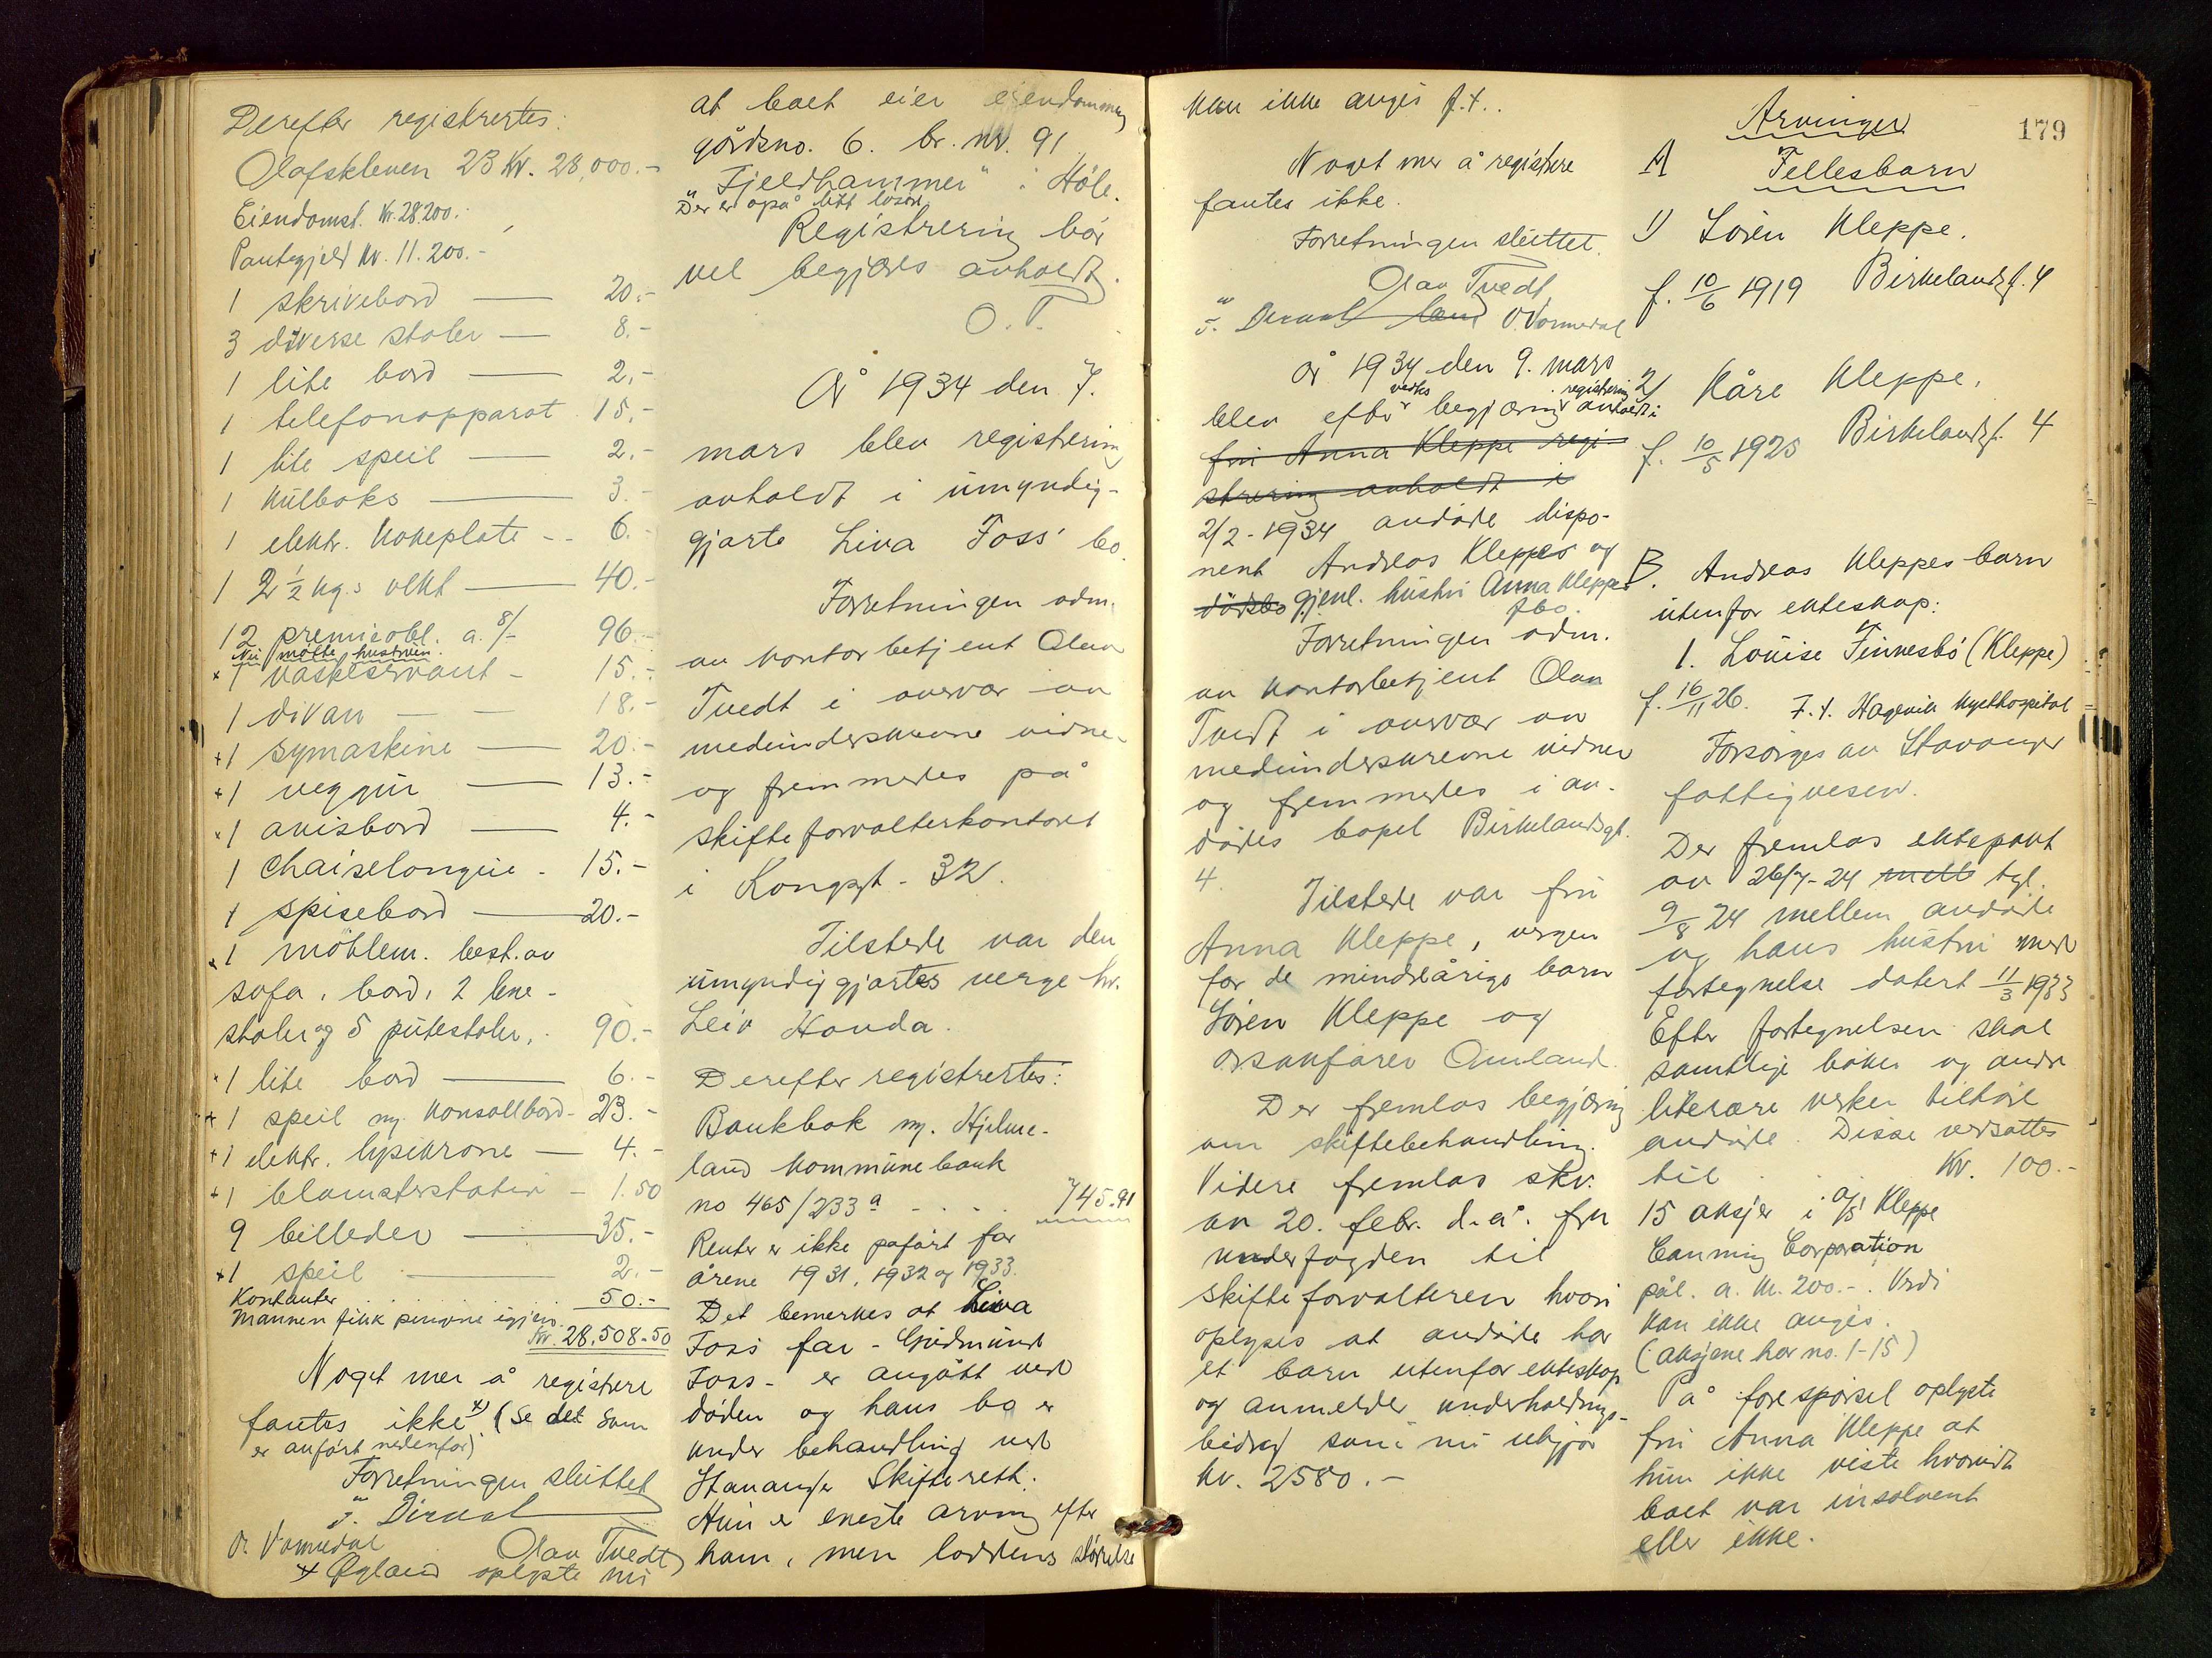 Derefter registrertes:
Olafskleven 23 Kr. 28,000.-
Eiendomst. Kr. 28.200.-
Pantegjeld Kr. 11.200.-
1 skrivebord — 20.-
3 diverse stoler — 8.-
1 lite bord — 2.-
1 telefonapparat 15.-
1 lite speil — 2.-
1 kulboks — 3.-
1 elektr. kokeplate - - 6.-
1 2 ½ kg.s vekt — 40.-
12 premieobl. a. 8/- 96.-
Nu møtte hustruen.
x 1 vaskeservant - 15.-
1 divan — - 18.-
+1 symaskine — 20.-
+1 veggur — 13.-
x1 avisbord — 4.-
1 chaiselongue - 15.-
1 spisebord — 20.-
x1 möblem. best. av
sofa, bord, 2 lene-
stoler og 5 putestoler, 90.-
x1 lite bord — 6.-
+1 speil m. konsollbord - 23.-
+1 elektr. lysekrone — 4.-
+1 blomsterstativ - 1.50
9 billeder — 35.-
+1 speil — 2.-
Kontanter 50.-
Mannen fikk pengene igjen.
Kr. 28,508-50
Noget mer å registrere
fantes ikke x) (se det som
er anført nedenfor)
Forretningen sluttet
O. Vormedal Olav Tvedt
x Øgland oplyste nu
at boet eier eiendommen
gårdsno. 6. br. nr. 91
"Fjeldhammer" i Høle.
Der er også litt løsøre
Registrering bør
vel begjæres avholdt.
O.T.
År 1934 den 7.
mars blev registrering
avholdt i umyndig-
gjorte Liva Foss' bo.
Forretningen adm.
av kontorbetjent Olav
Tvedt i overvær av
medunderskrevne vidner
og fremmedes på
skifteforvalterkontoret
i Kongsgt. 32.
Tilstede var den
umyndiggjortes verge hr.
Leiv Honda.
Derefter registrertes:
Bankbok m. Hjelme-
land kommunebank
no 465/233 a - . . . 745.91
Renter er ikke påført for
årene 1931, 1932 og 1933.
Det bemerkes at Liva
Foss far - Gudmund
Foss - er avgått ved
døden og hans bo er
under behandling ved
Stavanger Skifterett.
Hun er eneste arving efter
ham, men loddens størrelse
kan ikke angis f.t..
Noget mer å registrere
fantes ikke.
Forretningen sluttet.
Olav Tvedt
O. Vormedal
År 1934 den 9. mars
blev efter begjæring registrering avholdt i
fru Anna Kleppe regi-
strering avholdt i
2/2-1934 avdøde dispo-
nent Andreas Kleppes og
dødsbo gjenl. hustru Anna Kleppes
fbo.
Forretningen adm.
av kontorbetjent Olav
Tvedt i overvær av
medunderskrevne vidner
og fremmedes i av-
dødes bopel Birkelandsgt.
4.
Tilstede var fru
Anna Kleppe, vergen
for de mindreårige barn
Søren Kleppe og
o.r.sakfører Omland.
Der fremlas begjæring
om skiftebehandling.
Videre fremlas skr.
av 20. febr. d.å. fra
underfogden til
skifteforvalteren hvori
oplyses at avdøde har
et barn utenfor ekteskap
og anmelder underholdnings-
bidrag som nu utgjør
kr. 2580.-
179
Arvinger
A Fellesbarn
1) Søren Kleppe.
f. 10/6 1919 Birkelandsg. 4
2) Kåre Kleppe.
f. 10/5 1925 Birkelandsg. 4
B. Andreas Kleppes barn
utenfor ekteskap:
1. Louise Finnesbö (Kleppe)
f. 16/11 26. F.t. Hagevik Kysthospital
Forsørges av Stavanger
fattigvesen.
Der fremlas ektepakt
av 26/7-24 mell tgl.
9/8 24 mellem avdøde
og hans hustru med
fortegnelse datert 11/3 1933
Efter fortegnelsen skal
samtlige bøker og andre
literære verker tilhøre
avdøde. Disse verdsattes
til . . Kr. 100.-
15 aksjer i A/S Kleppe
Canning Corporation
pål. a. kr. 200.-. Verdi
kan ikke angis.
(aksjene har no. 1-15)
På forespørsel oplyste
fru Anna Kleppe at
hun ikke viste hvorvidt
boet var insolvent
eller ikke.